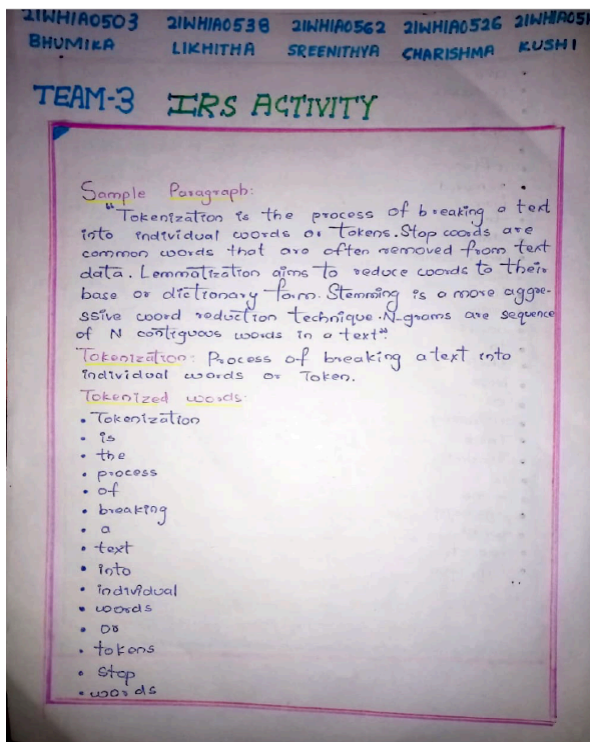 21WH1A0503 21WH1A0538 21WH1A0562 21WH1A0526 21WH1A051
BHUMIKA LIKHITHA SREENITHYA CHARISHMA KUSHI
TEAM-3 IRS ACTIVITY
Sample Paragraph:
"Tokenization is the process of breaking a text
into individual words or tokens. Stop words are
common words that are often removed from text
data. Lemmatization aims to reduce words to their
base or dictionary form. Stemming is a more aggre-
ssive word reduction technique. N-grams are sequence
of N contiguous words in a text".
Tokenization: Process of breaking a text into
individual words or Token.
Tokenized words:
• Tokenization
• is
• the
• process
• of
• breaking
• a
• text
• into
• individual
• words
• or
• tokens
• stop
• words